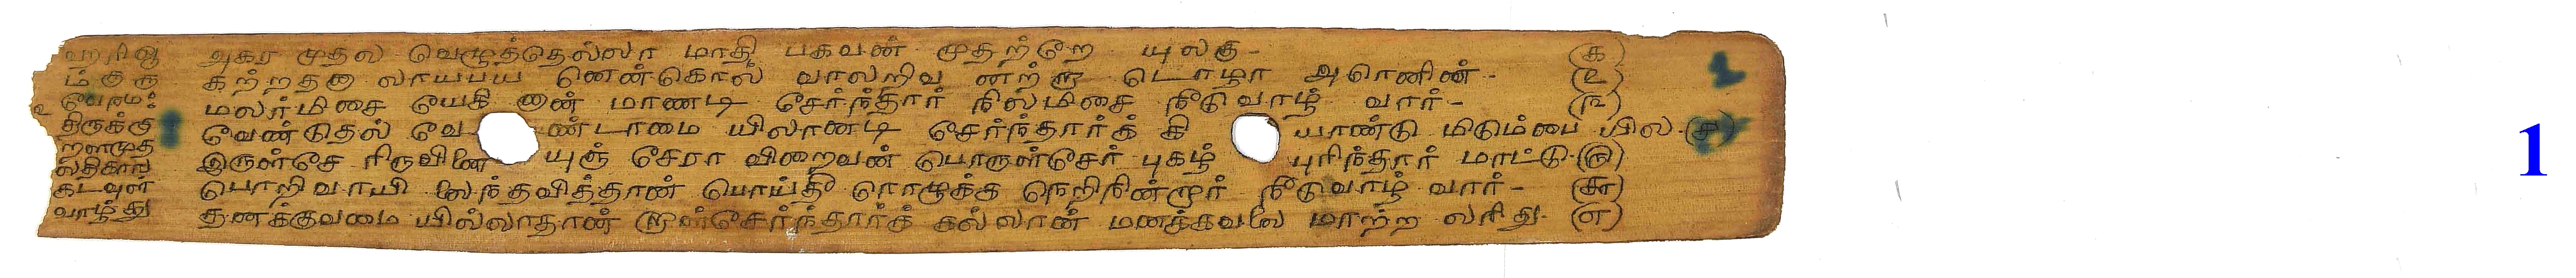 ஹரிஓ
ம் குரு
வேநம:
திருக்கு
றளமுத
லதிகார
கடவுள்
வாழ்த்து
அகர முதல வெழுத்தெல்லா மாதி பகவன் முதற்றே யுலகு- (௧)
கற்றதனா லாயபய னென்கொல் வாலறிவ னற்றா டொழாஅ ரெனின்- (௨)
மலர்மிசை யேகி னான் மாணடி சேர்ந்தார் நிலமிசை நீடுவாழ் வார்- (௩)
வேண்டுதல் வே ண்டாமை யிலானடி சேர்ந்தார்க் கி யாண்டு மிடும்பை யில- (௪)
இருள்சே ரிருவினை யுஞ் சேரா விறைவன் பொருள்சேர் புகழ் புரிந்தார் மாட்டு- (௫)
பொறிவாயி லைந்தவித்தான் பொய்தீ ரொழுக்க நெறிநின்றார் நீடுவாழ் வார்- (௬)
தனக்குவமை யில்லாதான் றாள்சேர்ந்தார்க் கல்லான் மனக்கவலை மாற்ற லரிது- (௭)
1